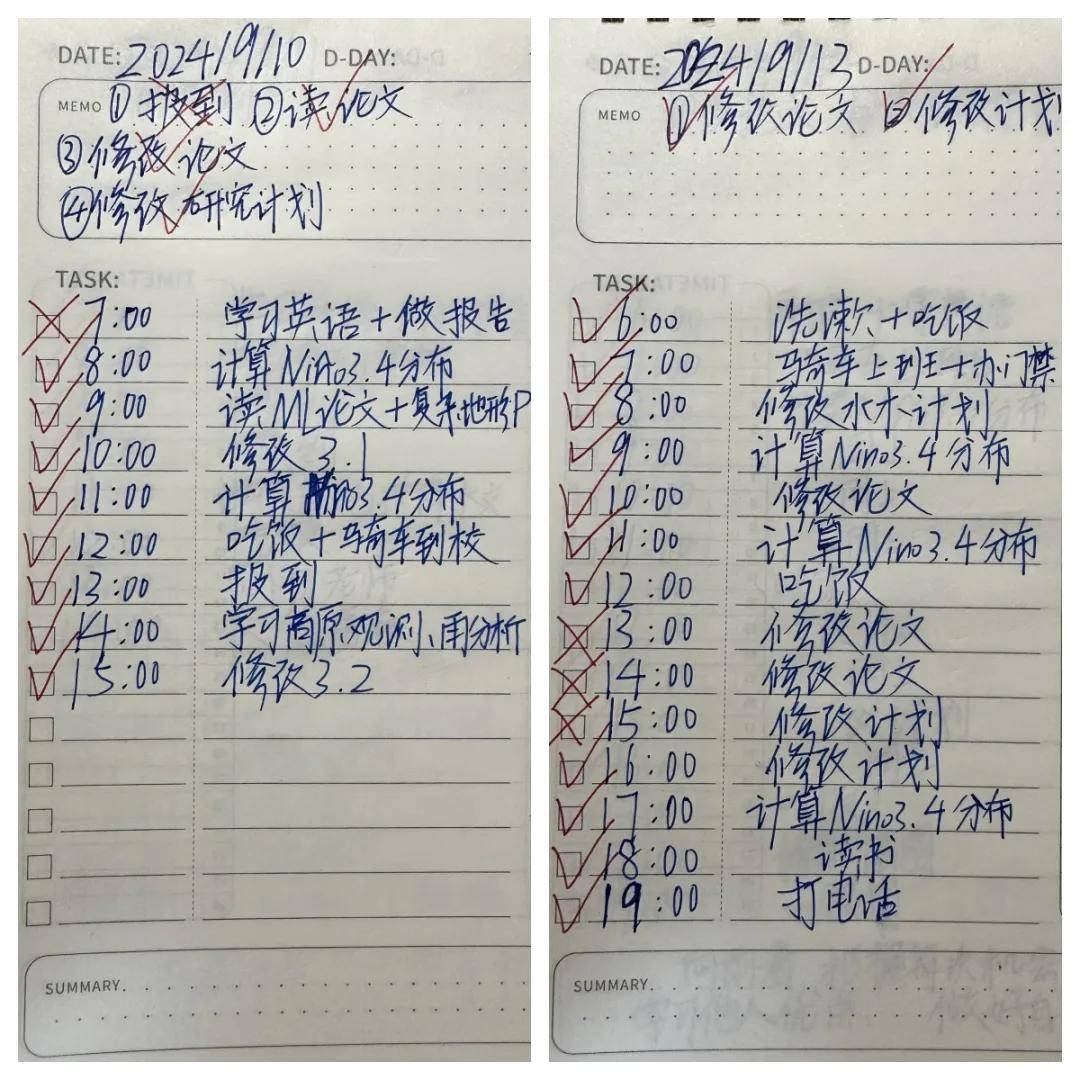 DATE: 2024/9/10 D-DAY:
MEMO ①报到 ②读论文
③修改论文
④修改研究计划
TASK:
7:00 学习英语+做报告
8:00 计算Nino3.4分布
9:00 读ML论文+复杂地形P
10:00 修改3.1
11:00 计算Nino3.4分布
12:00 吃饭+骑车到校
13:00 报到
14:00 学习高原观测、再分析
15:00 修改3.2
SUMMARY.
DATE: 2024/9/13 D-DAY:
MEMO ①修改论文 ②修改计划
TASK:
6:00 洗漱+吃饭
7:00 骑车上班+办门禁
8:00 修改水木计划
9:00 计算Nino3.4分布
10:00 修改论文
11:00 计算Nino3.4分布
12:00 吃饭
13:00 修改论文
14:00 修改论文
15:00 修改计划
16:00 修改计划
17:00 计算Nino3.4分布
18:00 读书
19:00 打电话
SUMMARY.